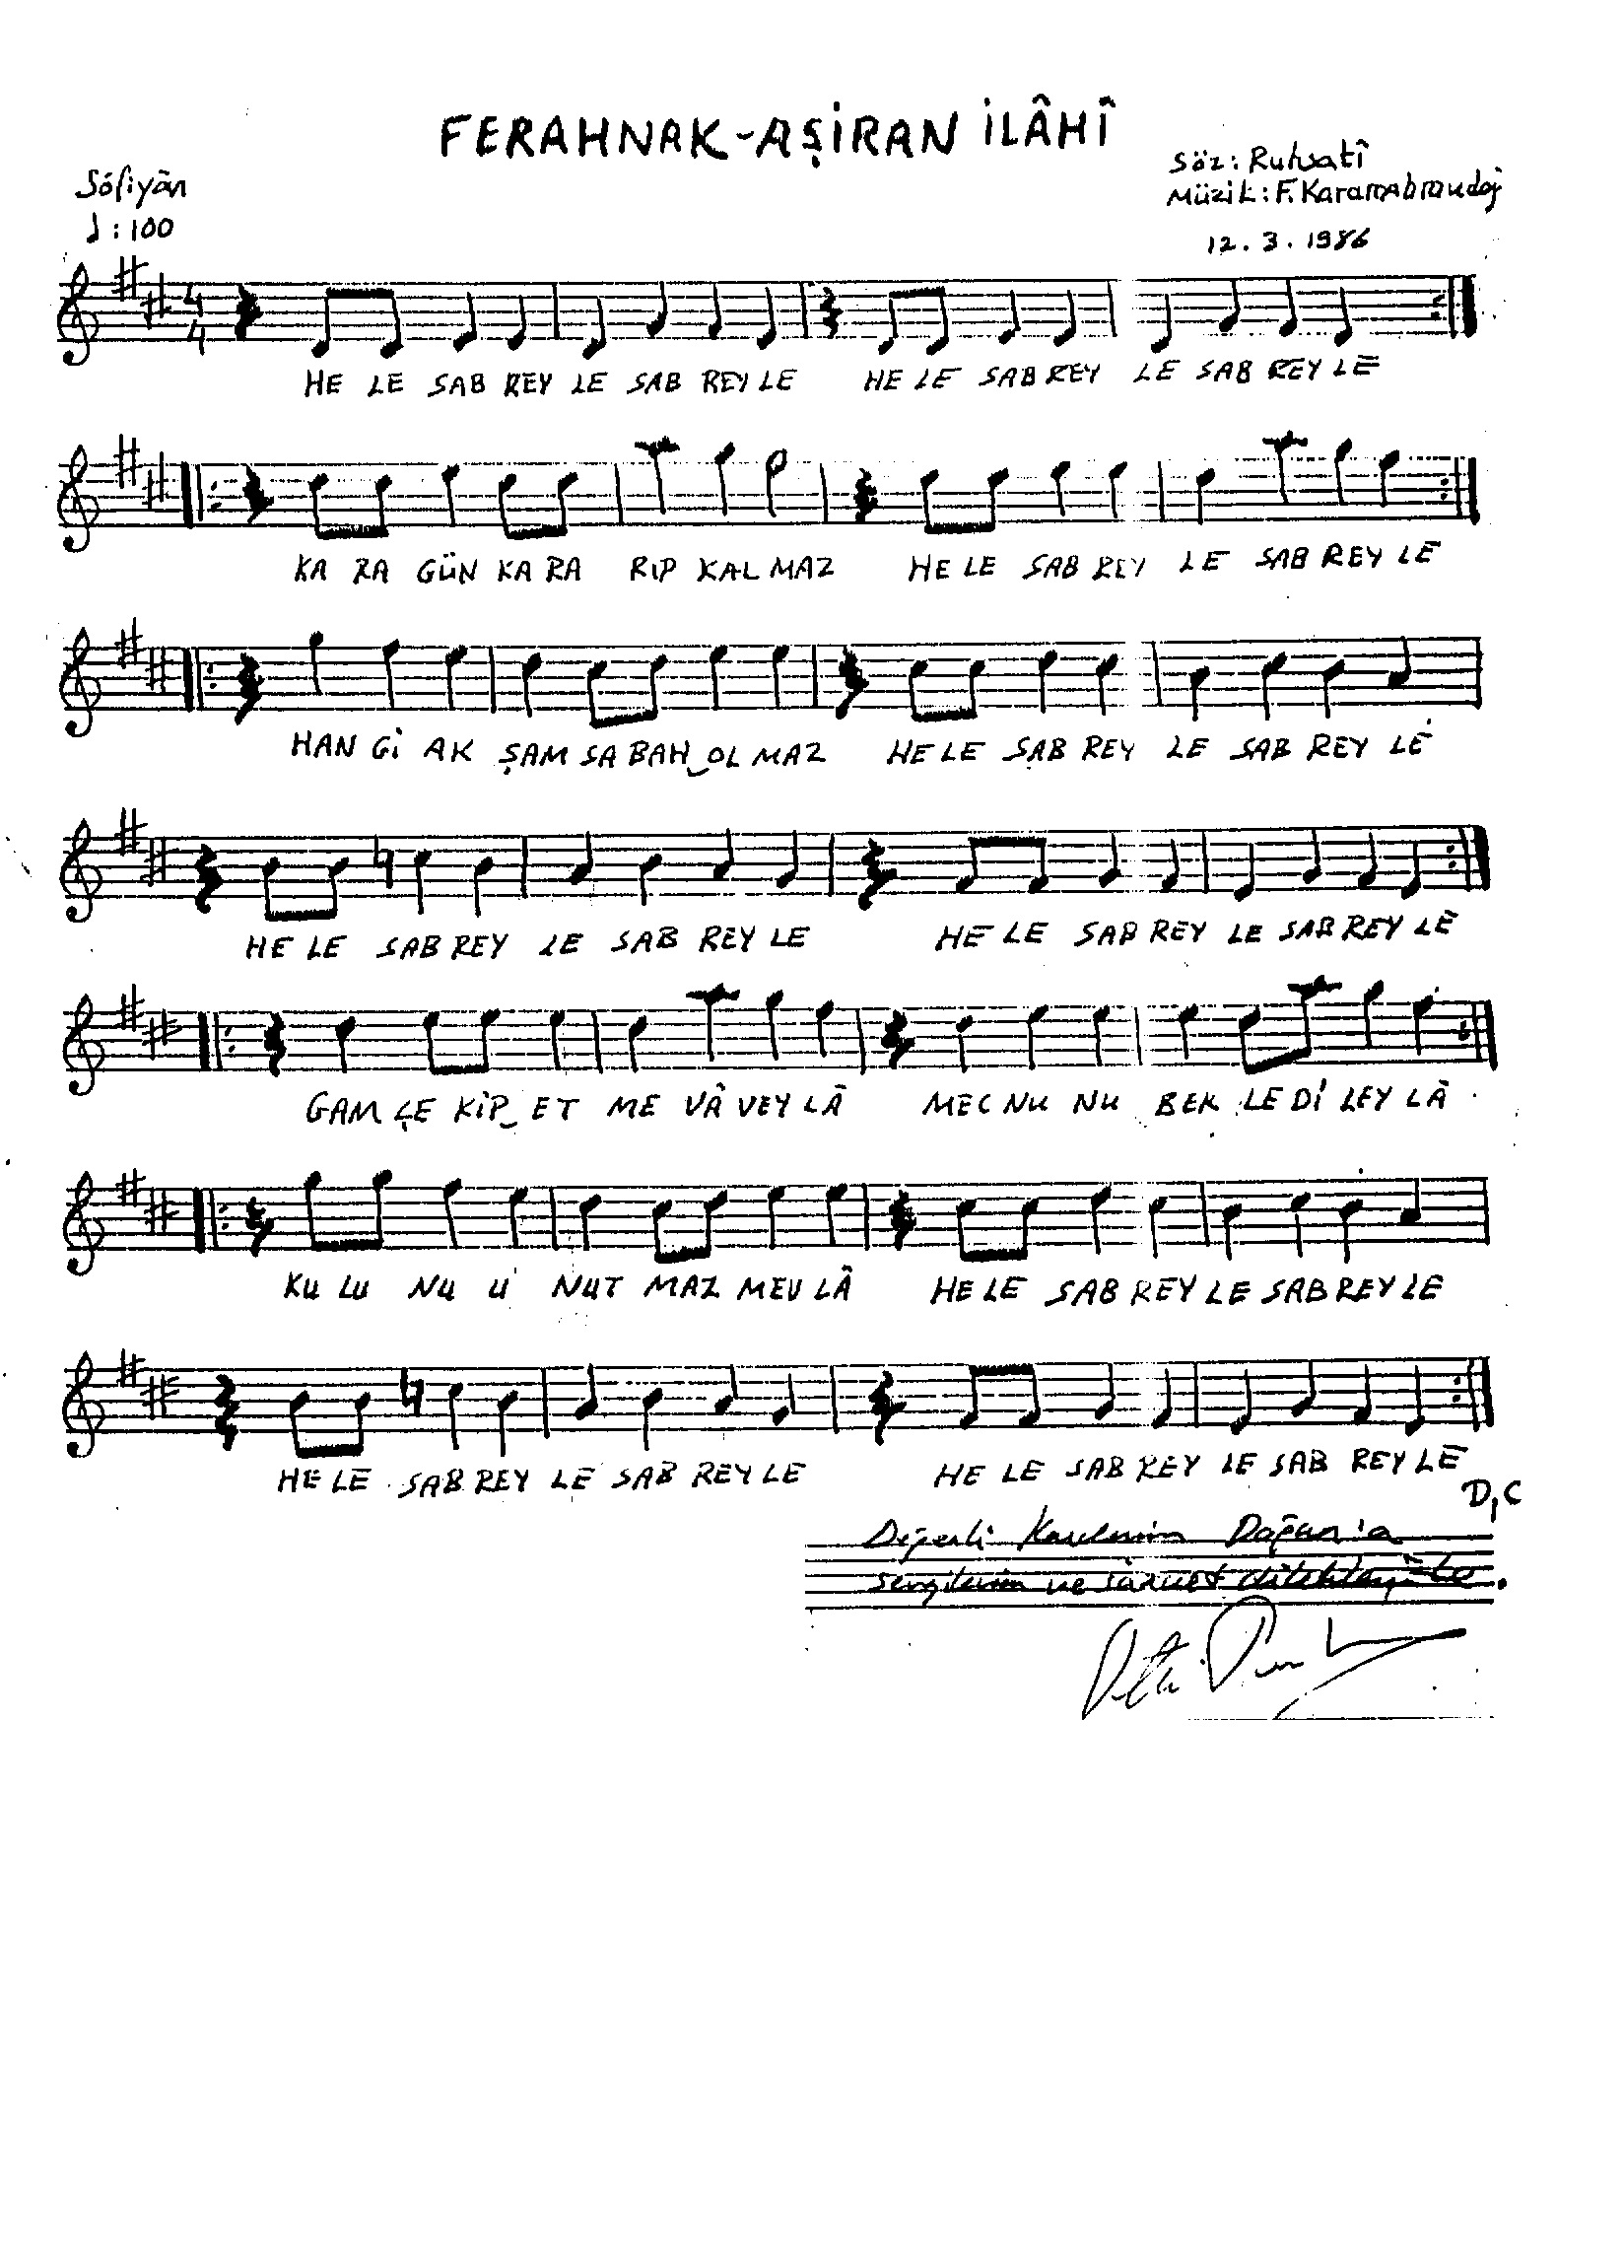 FERAHNAK-AŞİRAN İLÂHÎ
Sôfiyân
Söz: Ruhsatî
♩: 100
Müzik: F. Karamahmudoğ
12. 3. 1986
4
4
HE LE SAB REY LE SAB REY LE HE LE SAB REY LE SAB REY LE
KA RA GÜN KA RA RIP KAL MAZ HE LE SAB REY LE SAB REY LE
HAN Gİ AK ŞAM SA BAH_OL MAZ HE LE SAB REY LE SAB REY LE
HE LE SAB REY LE SAB REY LE HE LE SAB REY LE SAB REY LE
GAM ÇE KİP_ET ME VÂ VEY LÂ MEC NU NU BEK LE Dİ LEY LÂ
KU LU NU U NUT MAZ MEV LÂ HE LE SAB REY LE SAB REY LE
HE LE SAB REY LE SAB REY LE HE LE SAB REY LE SAB REY LE
D,C
Değerli Doğan'a
ve